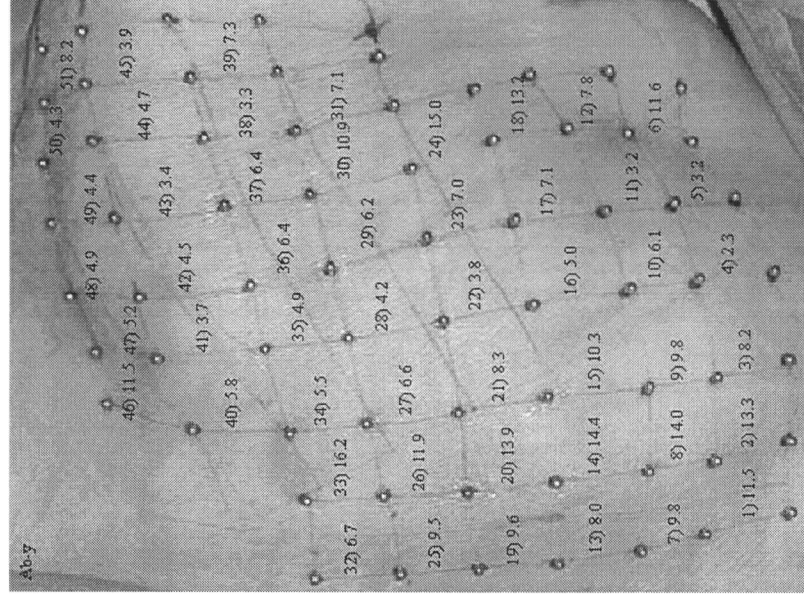 Ab-y
1) 11.5
2) 13.3
3) 8.2
4) 2.3
5) 3.2
6) 11.6
7) 9.8
8) 14.0
9) 9.8
10) 6.1
11) 3.2
12) 7.8
13) 8.0
14) 14.4
15) 10.3
16) 5.0
17) 7.1
18) 13.2
19) 9.6
20) 13.9
21) 8.3
22) 3.8
23) 7.0
24) 15.0
25) 9.5
26) 11.9
27) 6.6
28) 4.2
29) 6.2
30) 10.9
31) 7.1
32) 6.7
33) 16.2
34) 5.5
35) 4.9
36) 6.4
37) 6.4
38) 3.3
39) 7.3
40) 5.8
41) 3.7
42) 4.5
43) 3.4
44) 4.7
45) 3.9
46) 11.5
47) 5.2
48) 4.9
49) 4.4
50) 4.3
51) 8.2